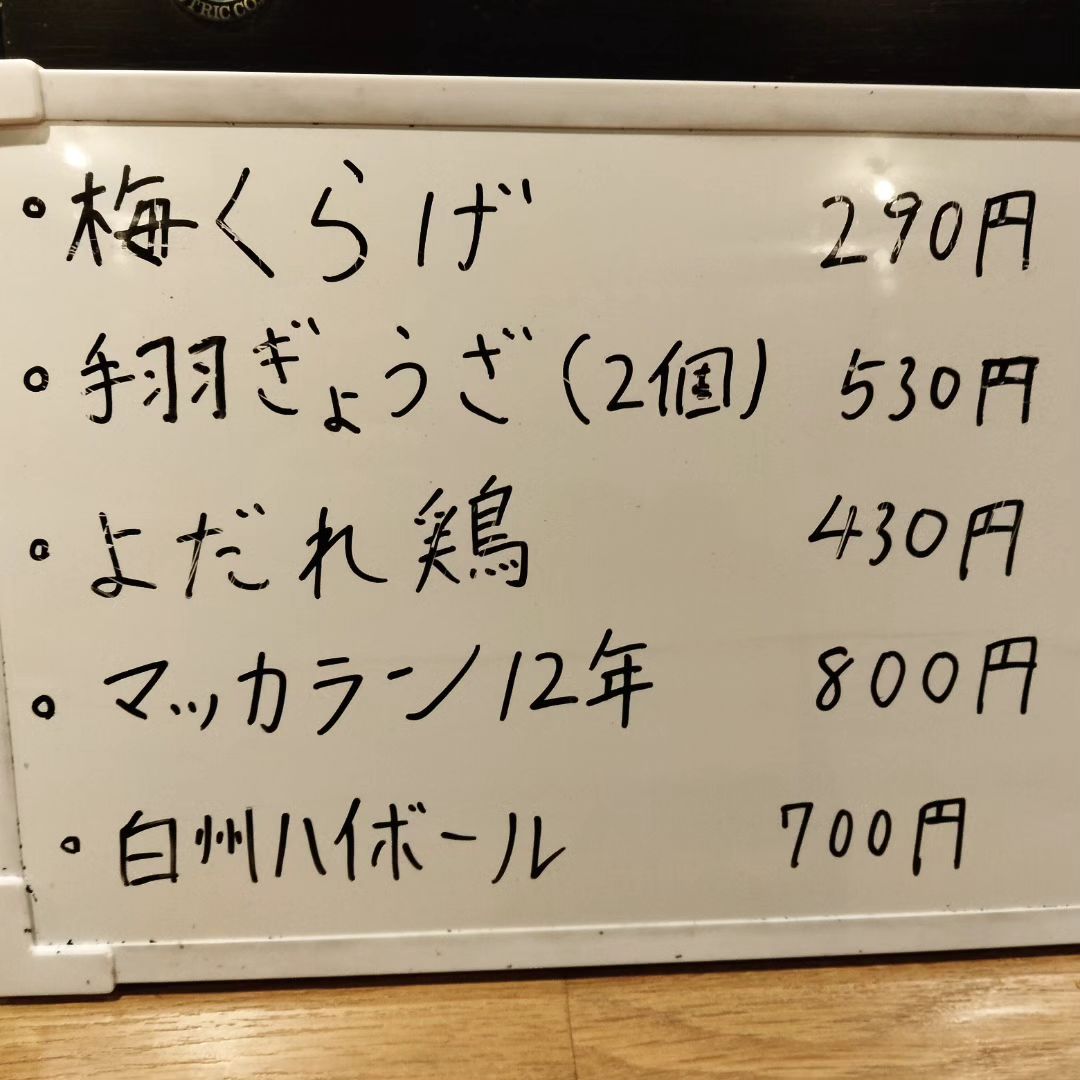 TRIC CO.
・梅くらげ 290円
・手羽ぎょうざ(2個) 530円
・よだれ鶏 430円
・マッカラン12年 800円
・白州ハイボール 700円